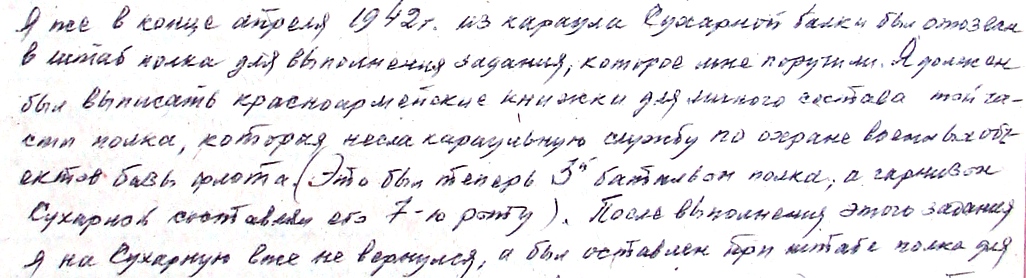 Я же в конце апреля 1942 г. из караула Сухарной балки был отозван
в штаб полка для выполнения задания, которое мне поручили. Я должен
был выписать красноармейские книжки для личного состава той ча-
сти полка, которая несла караульную службу по охране военных объ-
ектов базы флота. (Это был теперь 3й батальон полка, а гарнизон
Сухарной составлял его 7-ю роту). После выполнения этого задания
я на Сухарную уже не вернулся, а был оставлен при штабе полка для